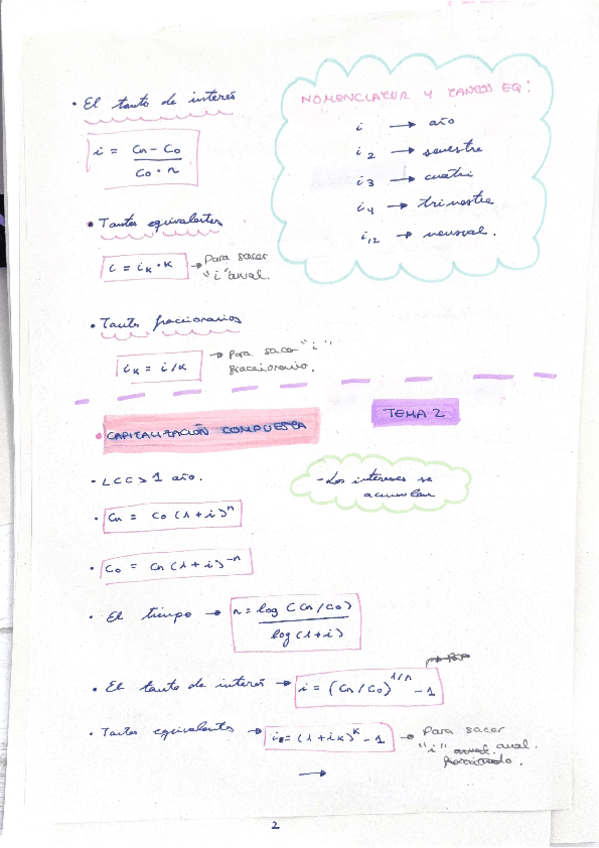 • El tanto de interés
i = Cn - Co / Co · n
NOMENCLATUR Y TANTOS EQ:
i → año
i2 → semestre
i3 → cuatri
i4 → trimestre
i12 → mensual.
• Tantos equivalentes
i = iK · K → Para sacar
"i" anual.
• Tanto fraccionarios
iK = i/K → Para sacar "i"
fraccionario.
TEMA 2
• CAPITALIZACIÓN COMPUESTA
• LCC > 1 año.
- Los intereses se
acumulan
• Cn = Co (1+i)^n
• Co = Cn (1+i)^-n
• El tiempo → n = log (Cn/Co) / log (1+i)
• El tanto de interés → i = (Cn/Co)^1/n - 1
• Tantos equivalentes → i = (1+iK)^K - 1 → Para sacar
"i" anual.
→
2